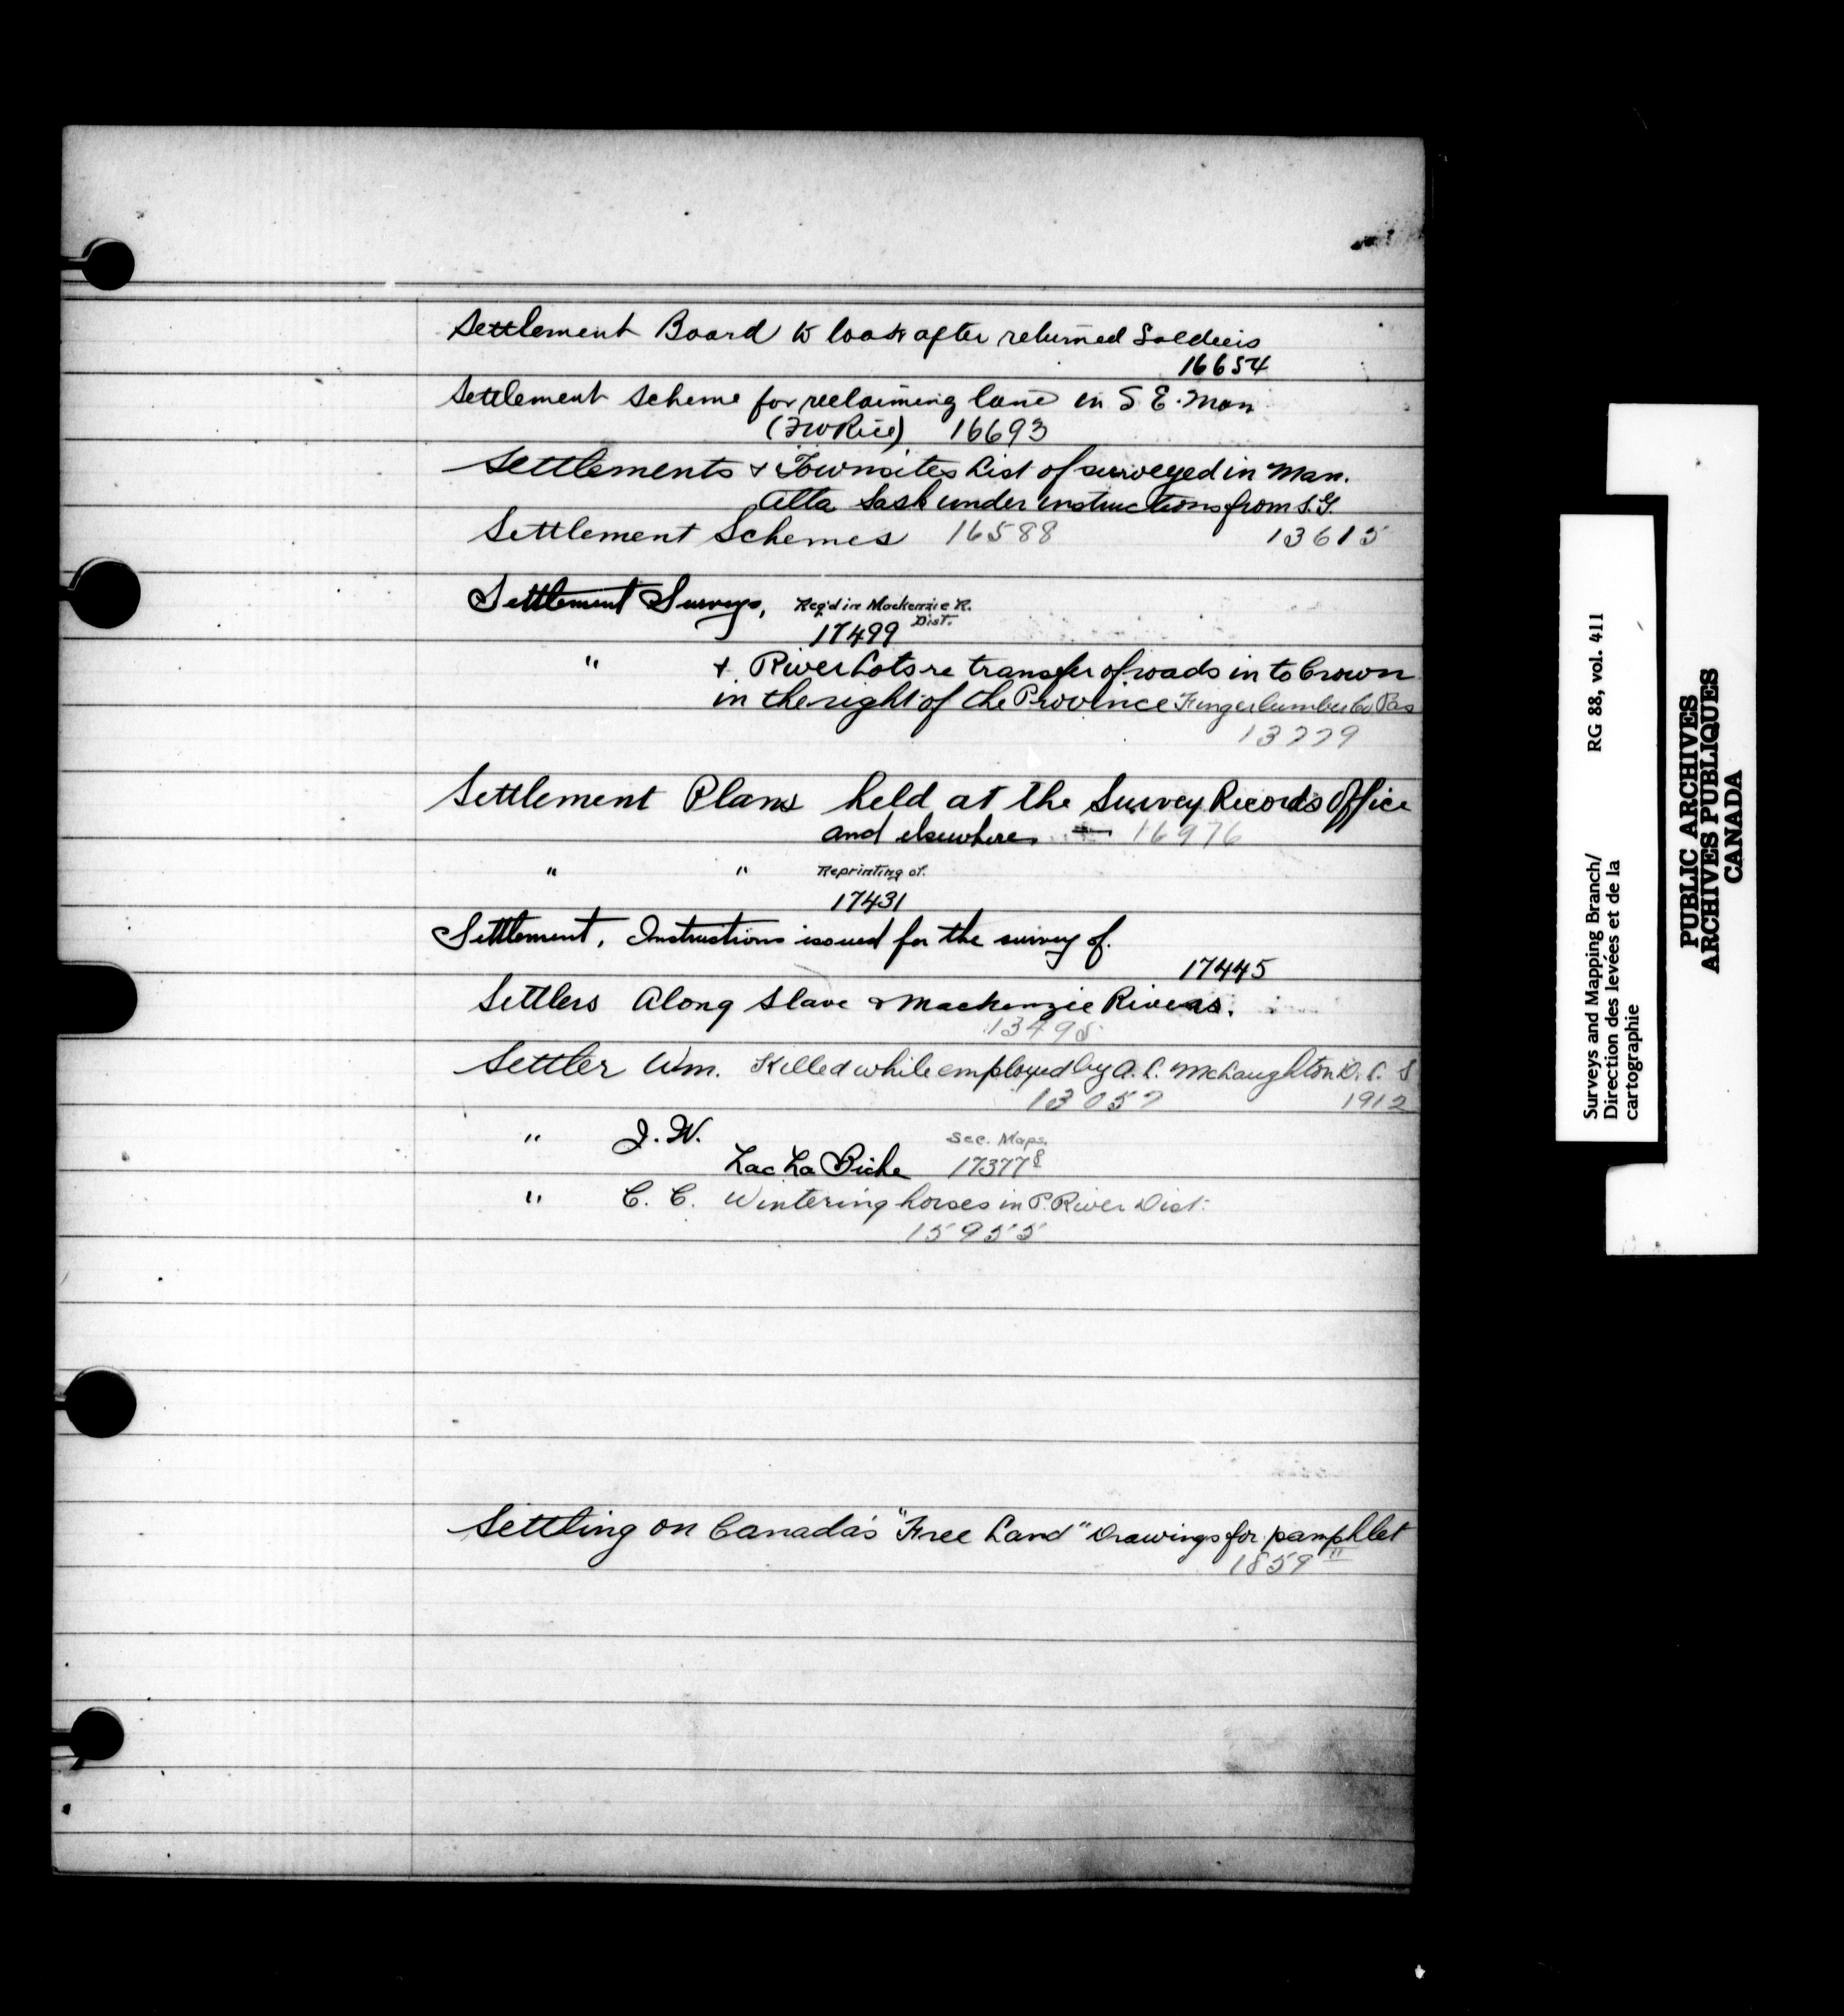 Settlement Board to look after returned Soldiers
16654
Settlement Scheme for reclaiming land in S E. Man
(FW Rice) 16693
Settlements & Townsites List of surveyed in Man.
Alta Sask under instructions from S.G.
Settlement Schemes 16588 13615
Settlement Surveys, Req'd in Mackenzie R.
Dist.
17499
" & River Lots re transfer of roads in to Crown
in the right of the Province Finger Lumber Co Pas
13779
Settlement Plans held at the Survey Records Office
and elsewhere 16976
" " Reprinting of.
17431
Settlement, Instructions issued for the survey of.
17445
Settlers Along Slave & Mackenzie Rivers.
13495
Settler Wm. Killed while employed by A. L. McNaughton D. L. S
13057 1912
" J. W. Sec. Maps.
Lac La Biche 17377 8
" C. C. Wintering horses in P. River Dist.
15955
Settling on Canada's "Free Land" Drawings for pamphlet
1859 II
Surveys and Mapping Branch/ RG 88, vol. 411
Direction des levées et de la
cartographie
PUBLIC ARCHIVES
ARCHIVES PUBLIQUES
CANADA